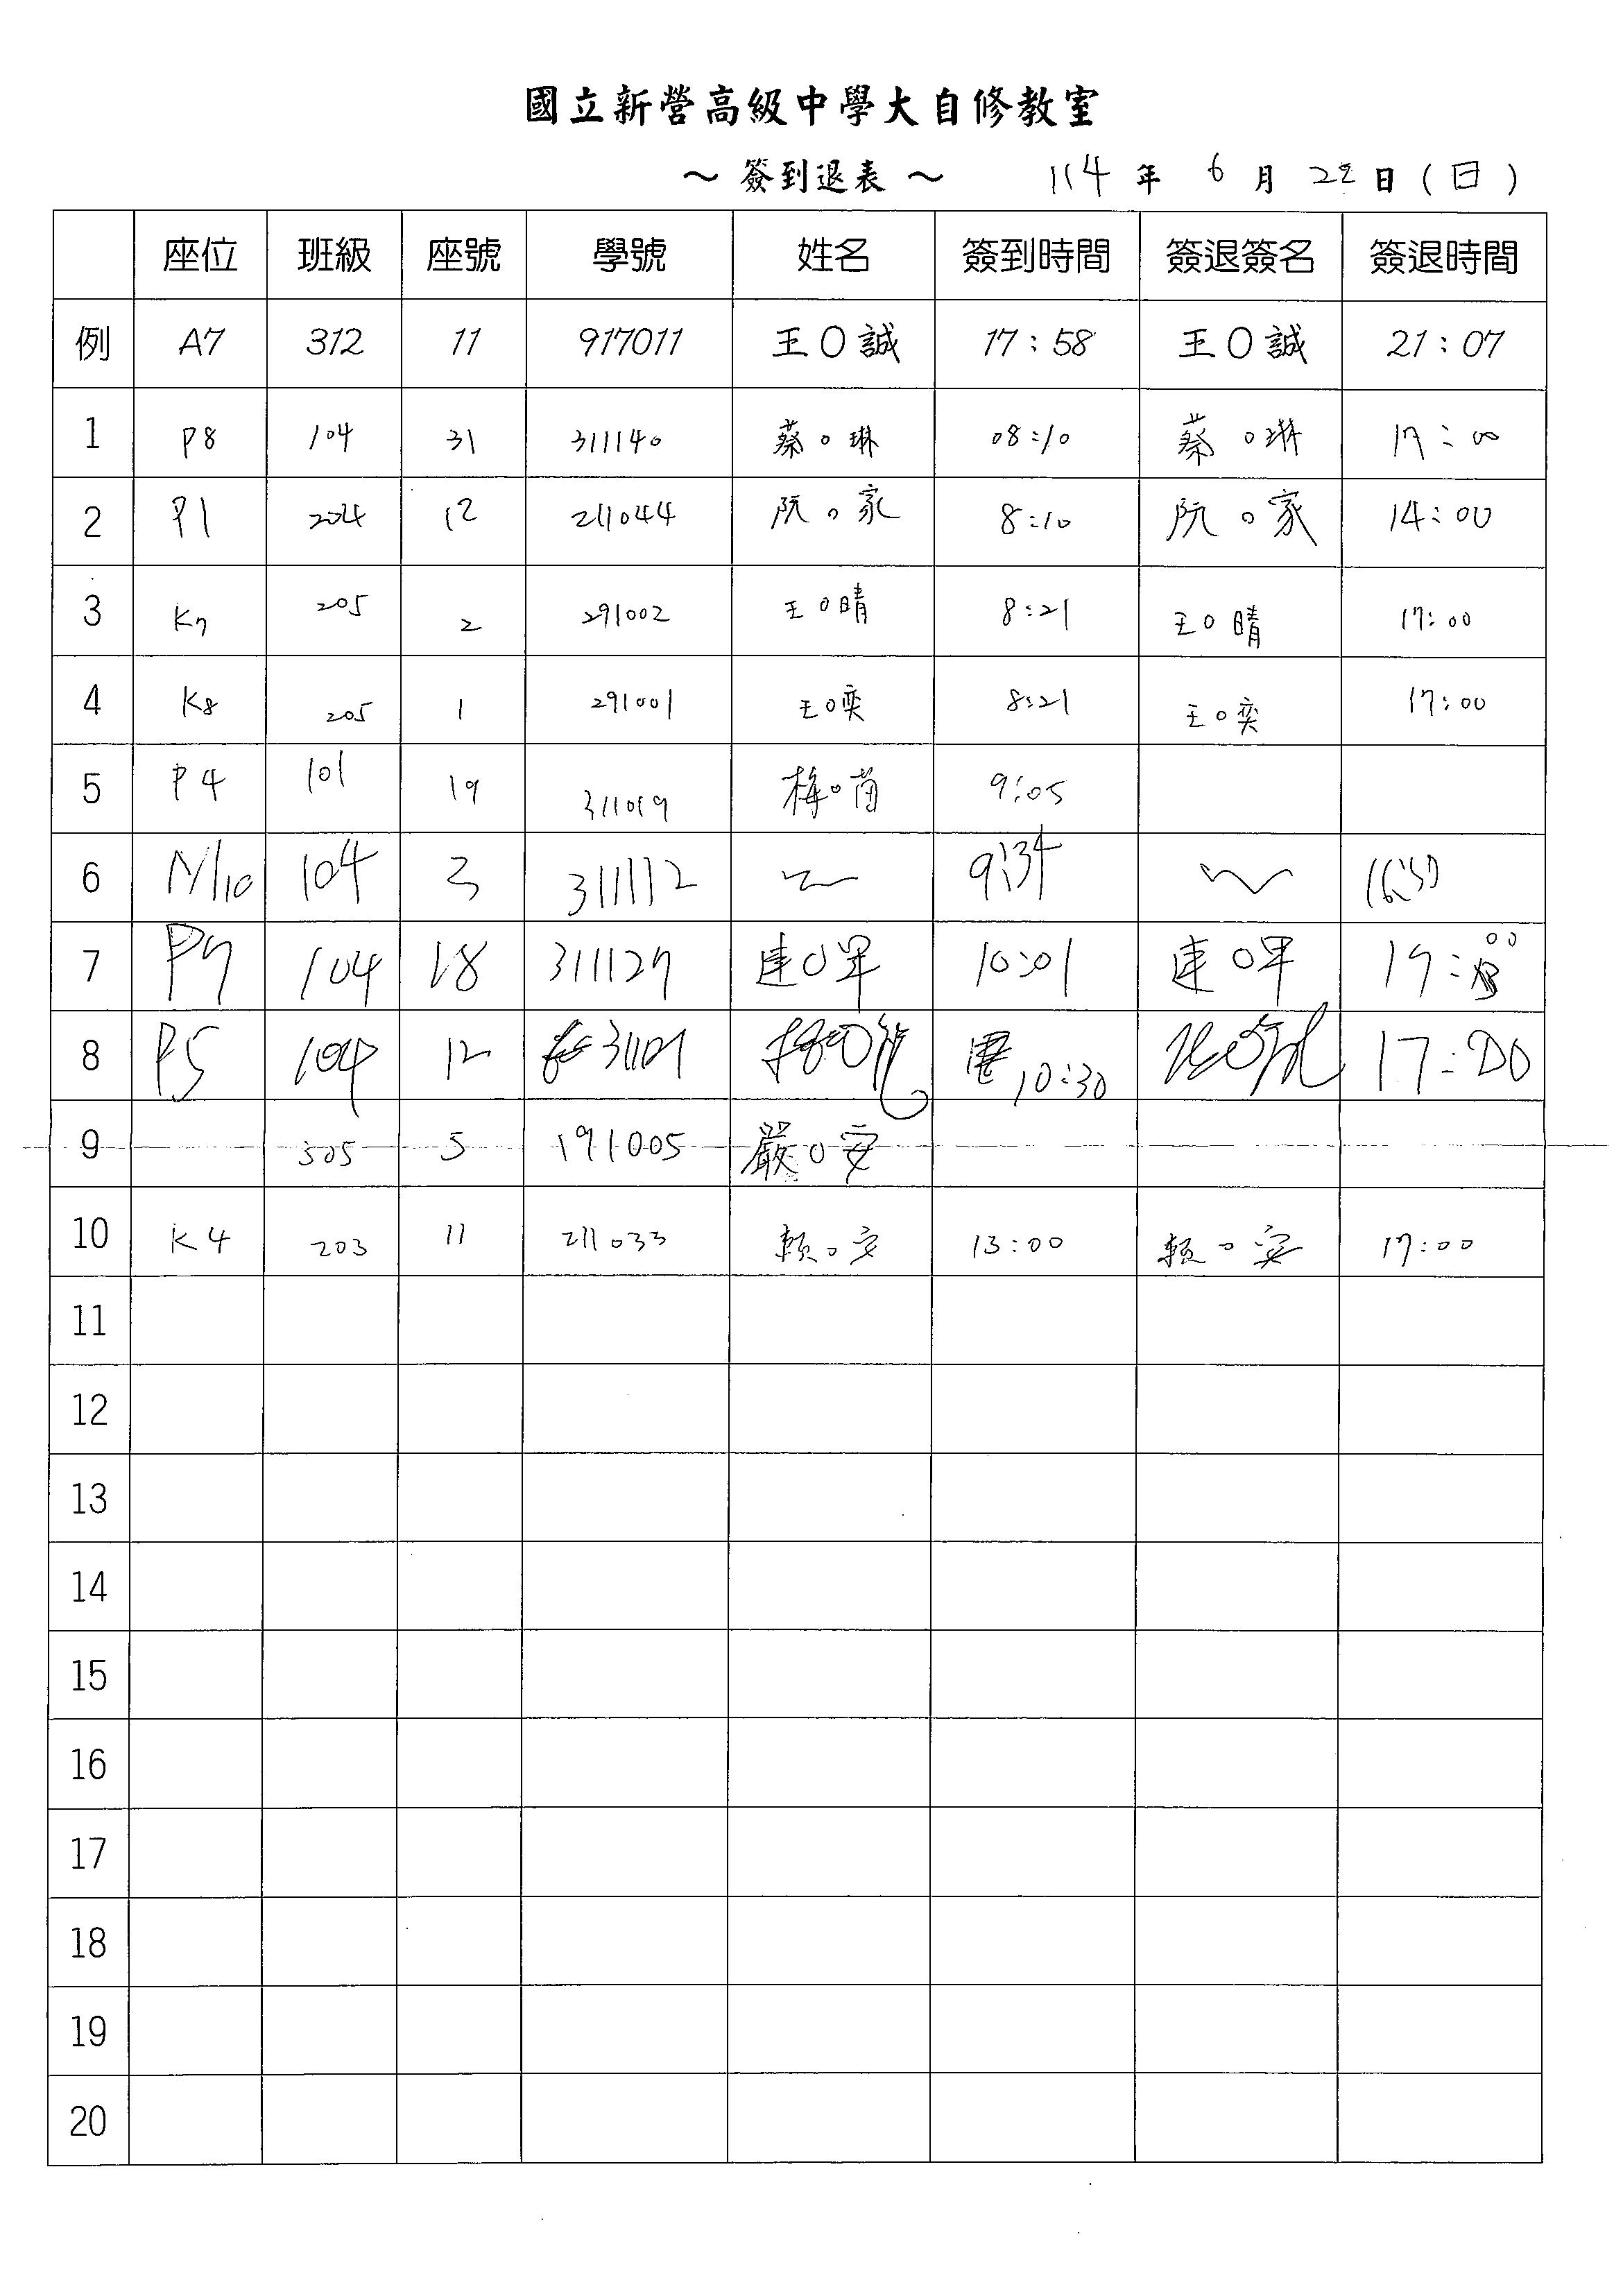 國立新營高級中學大自修教室
～簽到退表～ 114年6月22日(日)
座位 班級 座號 學號 姓名 簽到時間 簽退簽名 簽退時間
例 A7 312 11 917011 王O誠 17:58 王O誠 21:07
1 P8 104 31 311140 蔡O琳 08:10 蔡O琳 17:00
2 P1 204 12 211044 阮O家 8:10 阮O家 14:00
3 K7 205 2 291002 王O晴 8:21 王O晴 17:00
4 K8 205 1 291001 王O奕 8:21 王O奕 17:00
5 P4 101 19 311019 梅O茵 9:05
6 N10 104 3 311112 9:34
7 P7 104 18 311127 連O 10:01 連O 17:00
8 P5 104 12 10:30 17:00
9 305 5 191005 嚴O安
10 K4 203 11 211033 賴O安 13:00 賴O安 17:00
11
12
13
14
15
16
17
18
19
20